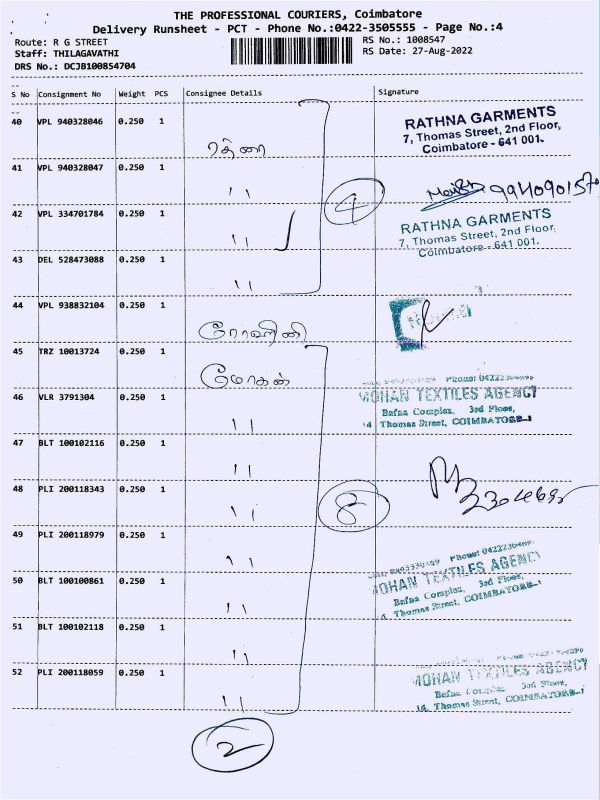 THE PROFESSIONAL COURIERS, Coimbatore
Delivery Runsheet - PCT - Phone No.:0422-3505555 - Page No.:4
Route: R G STREET
Staff: THILAGAVATHI
DRS No.: DCJB100854704
RS No.: 1008547
RS Date: 27-Aug-2022
S No Consignment No Weight PCS Consignee Details Signature
40 VPL 940328046 0.250 1 ரத்னா
RATHNA GARMENTS
7, Thomas Street, 2nd Floor,
Coimbatore - 641 001.
41 VPL 940328047 0.250 1 ''
4
42 VPL 334701784 0.250 1 ''
RATHNA GARMENTS
7, Thomas Street, 2nd Floor,
Coimbatore - 641 001.
43 DEL 528473088 0.250 1 ''
44 VPL 938832104 0.250 1 ரோஹினி
45 TRZ 10013724 0.250 1 மோகன்
MOHAN TEXTILES AGENCY
Bafna Complex, 3rd Floor,
14 Thomas Street, COIMBATORE-1
46 VLR 3791304 0.250 1 ''
47 BLT 100102116 0.250 1 ''
48 PLI 200118343 0.250 1 ''
8
49 PLI 200118979 0.250 1 ''
MOHAN TEXTILES AGENCY
Bafna Complex, 3rd Floor,
14 Thomas Street, COIMBATORE-1
50 BLT 100100861 0.250 1 ''
51 BLT 100102118 0.250 1 ''
52 PLI 200118059 0.250 1 ''
MOHAN TEXTILES AGENCY
Bafna Complex 3rd Floor,
14, Thomas Street, COIMBATORE-1
2